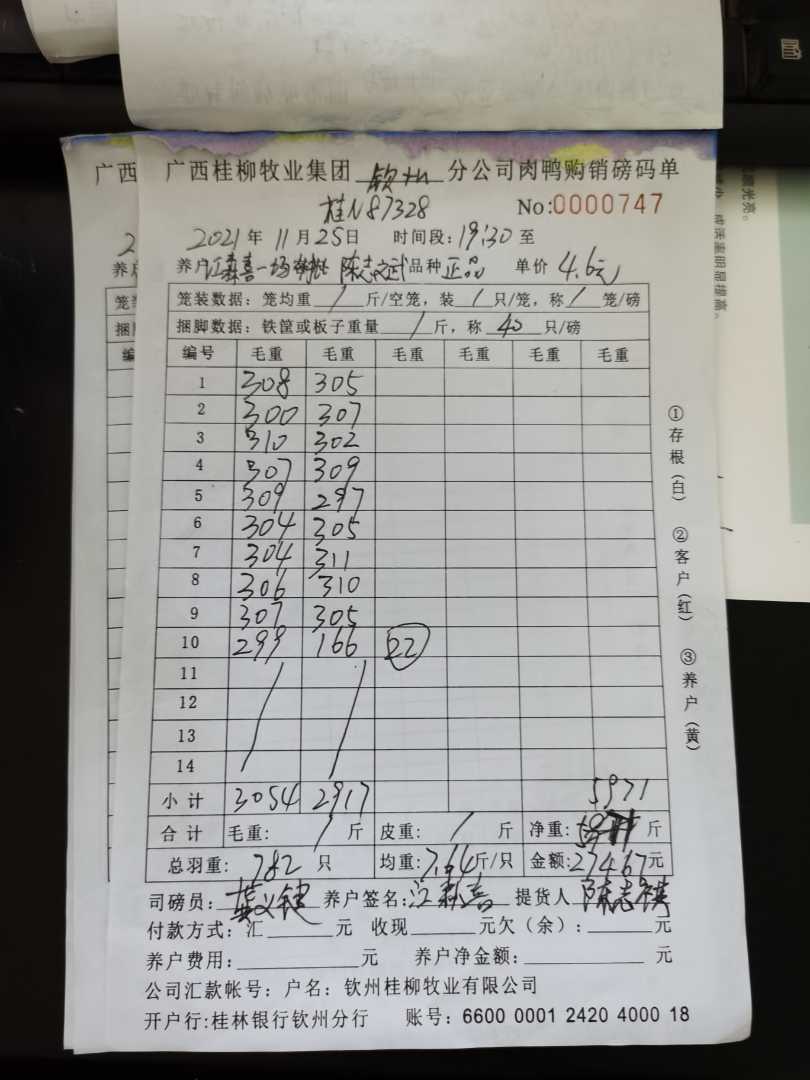 广西桂柳牧业集团 钦州 分公司肉鸭购销磅码单
桂N87328 No:0000747
2021年 11月25日 时间段:19:30至
养户 江森喜一场 陈志武 品种 正品 单价 4.6元
笼装数据:笼均重 / 斤/空笼,装 / 只/笼,称 / 笼/磅
捆脚数据:铁筐或板子重量 / 斤,称 40 只/磅
编号 毛重 毛重 毛重 毛重 毛重 毛重
1 308 305
2 300 307
3 310 302
4 307 309
5 309 297
6 304 305
7 304 311
8 306 310
9 307 305
10 299 166 22
11
12
13
14
小计 3054 2917 5971
合计 毛重: / 斤 皮重: / 斤 净重: 5971 斤
总羽重: 782 只 均重:7.64斤/只 金额:27467元
司磅员: 养户签名:江森喜 提货人 陈志
付款方式:汇 元 收现 元欠(余): 元
养户费用: 元 养户净金额: 元
公司汇款帐号:户名:钦州桂柳牧业有限公司
开户行:桂林银行钦州分行 账号:6600 0001 2420 4000 18
①存根(白) ②客户(红) ③养户(黄)
广西